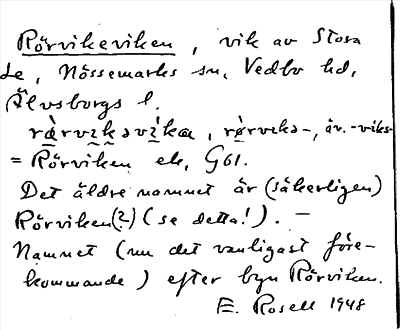 Rörvikeviken, vik av Stora
Le, Nössemarks sn, Vedbo hd,
Älvsborgs l.
rœ̀rvɩkəvì̵ka, rørvɩks-, äv. -viks-
= Rörviken ek, G61.
Det äldre namnet är (säkerligen)
Rörviken(?) (se detta!). —
Namnet (nu det vanligast före-
kommande) efter byn Rörviken.
E. Rosell 1948